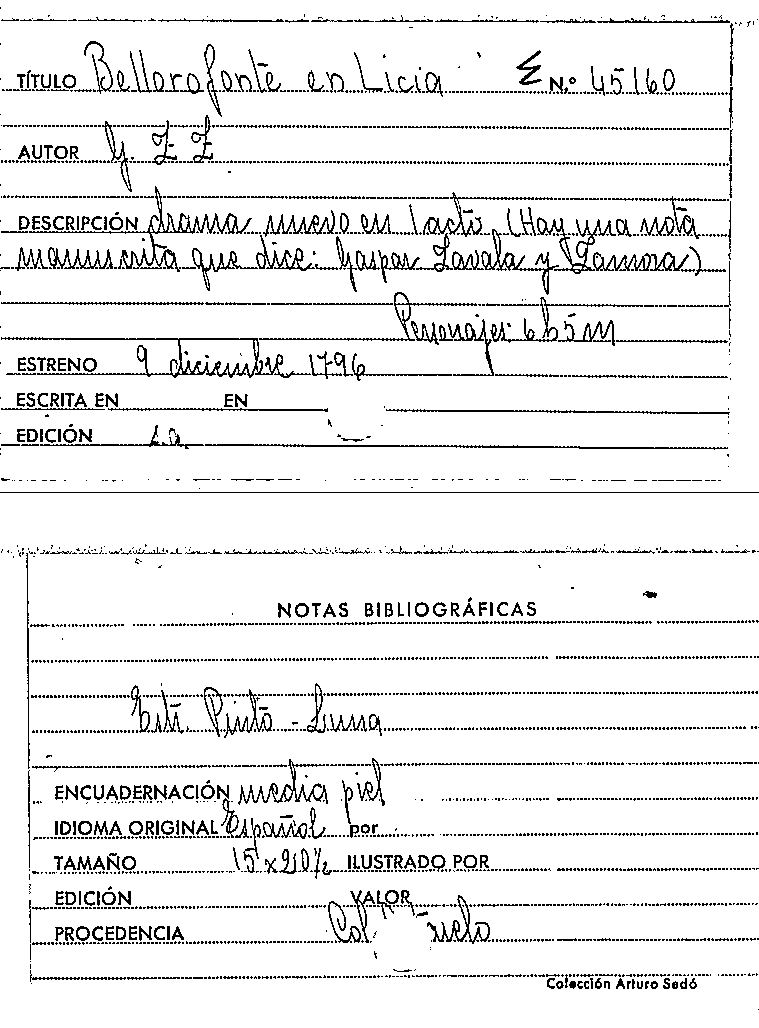 TÍTULO Bellorofonte en Licia N.º 45160
AUTOR G. Z Z
DESCRIPCIÓN drama nuevo en 1 acto (Hay una nota
manuscrita que dice: Gaspar Zavala y Zamora)
Personajes: 6 h 5 m
ESTRENO 9 diciembre 1796
ESCRITA EN EN
EDICIÓN s.a.
NOTAS BIBLIOGRÁFICAS
Estr. Pinto - Luna
ENCUADERNACIÓN media piel
IDIOMA ORIGINAL Español por
TAMAÑO 15 x 20½ ILUSTRADO POR
EDICIÓN VALOR
PROCEDENCIA Col
Colección Arturo Sedó